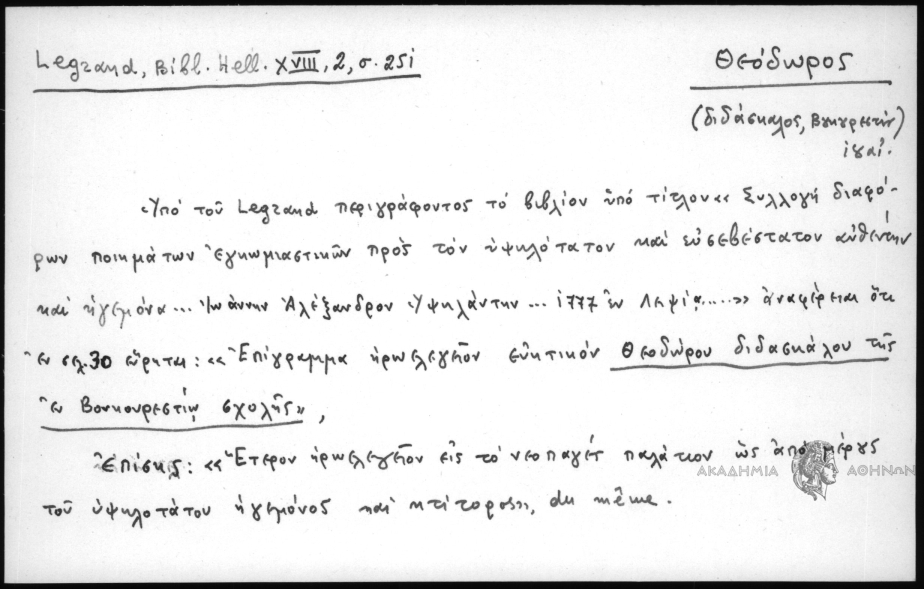 Legrand, Bibl. Hell. XVIII, 2, σ. 251
Θεόδωρος
(διδάσκαλος, Βουκουρεστίου)
ιηαί.
Ὑπό τοῦ Legrand περιγράφοντος τό βιβλίον ὑπό τίτλον «Συλλογή διαφό-
ρων ποιημάτων ἐγκωμιαστικῶν πρὸς τόν ὑψηλότατον καί εὐσεβέστατον αὐθέντην
καί ἡγεμόνα... Ἰωάννην Ἀλέξανδρον Ὑψηλάντην... 1777 ἐν Λειψίᾳ.....» ἀναφέρεται ὅτι
ἐν σελ. 30 εὕρηται: «Ἐπίγραμμα ἡρωελεγεῖον εὐκτικόν Θεοδώρου διδασκάλου τῆς
ἐν Βουκουρεστίῳ σχολῆς»,
Ἐπίσης: «Ἕτερον ἡρωελεγεῖον εἰς τό νεοπαγές παλάτιον ὡς ἀπό μέρους
τοῦ ὑψηλοτάτου ἡγεμόνος καί κτίτορος», du même.
ΑΚΑΔΗΜΙΑ ΑΘΗΝΩΝ